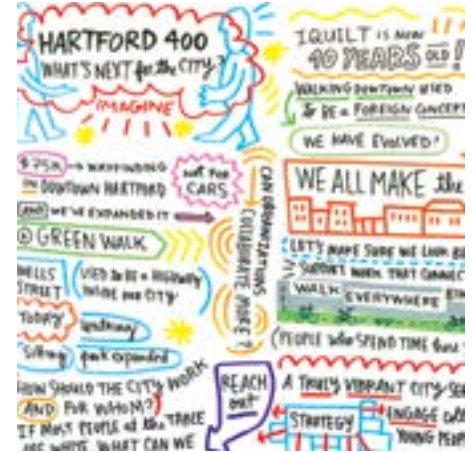 HARTFORD 400
WHAT'S NEXT for the CITY?
IMAGINE
$75K → WAYFINDING
IN DOWNTOWN HARTFORD
NOT FOR
CARS
AND WE'VE EXPANDED IT
GREEN WALK
WELLS
STREET
USED to BE a HIGHWAY
INSIDE our CITY
TODAY
walking
Sitting
park expanded
HOW SHOULD THE CITY WORK
AND FOR WHOM?
IF MOST PEOPLE at the TABLE
ARE WHITE, WHAT CAN WE
CAN ORGANIZATIONS
COLLABORATE MORE?
REACH
out
IQUILT is NOW
10 YEARS OLD!
WALKING DOWNTOWN USED
to BE a FOREIGN CONCEPT
WE HAVE EVOLVED!
WE ALL MAKE the
LET'S MAKE SURE WE LOOK
SUPPORT WORK THAT CONNEC
WALK EVERYWHERE
(PEOPLE who SPEND TIME
A TRULY VIBRANT CITY
STRATEGY
ENGAGE
YOUNG PEOP